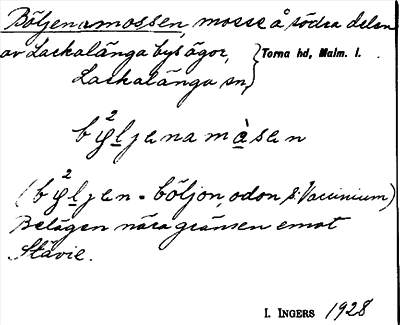 Böljenamossen, mosse å södra delen
av Lackalänga bys ägor, } Torna hd, Malm. l.
Lackalänga sn,
bφ²ljenamàsen
(bφ²ljen = böljon, odon s. Vaccinium)
Belägen nära gränsen emot
Stävie.
I. INGERS 1928